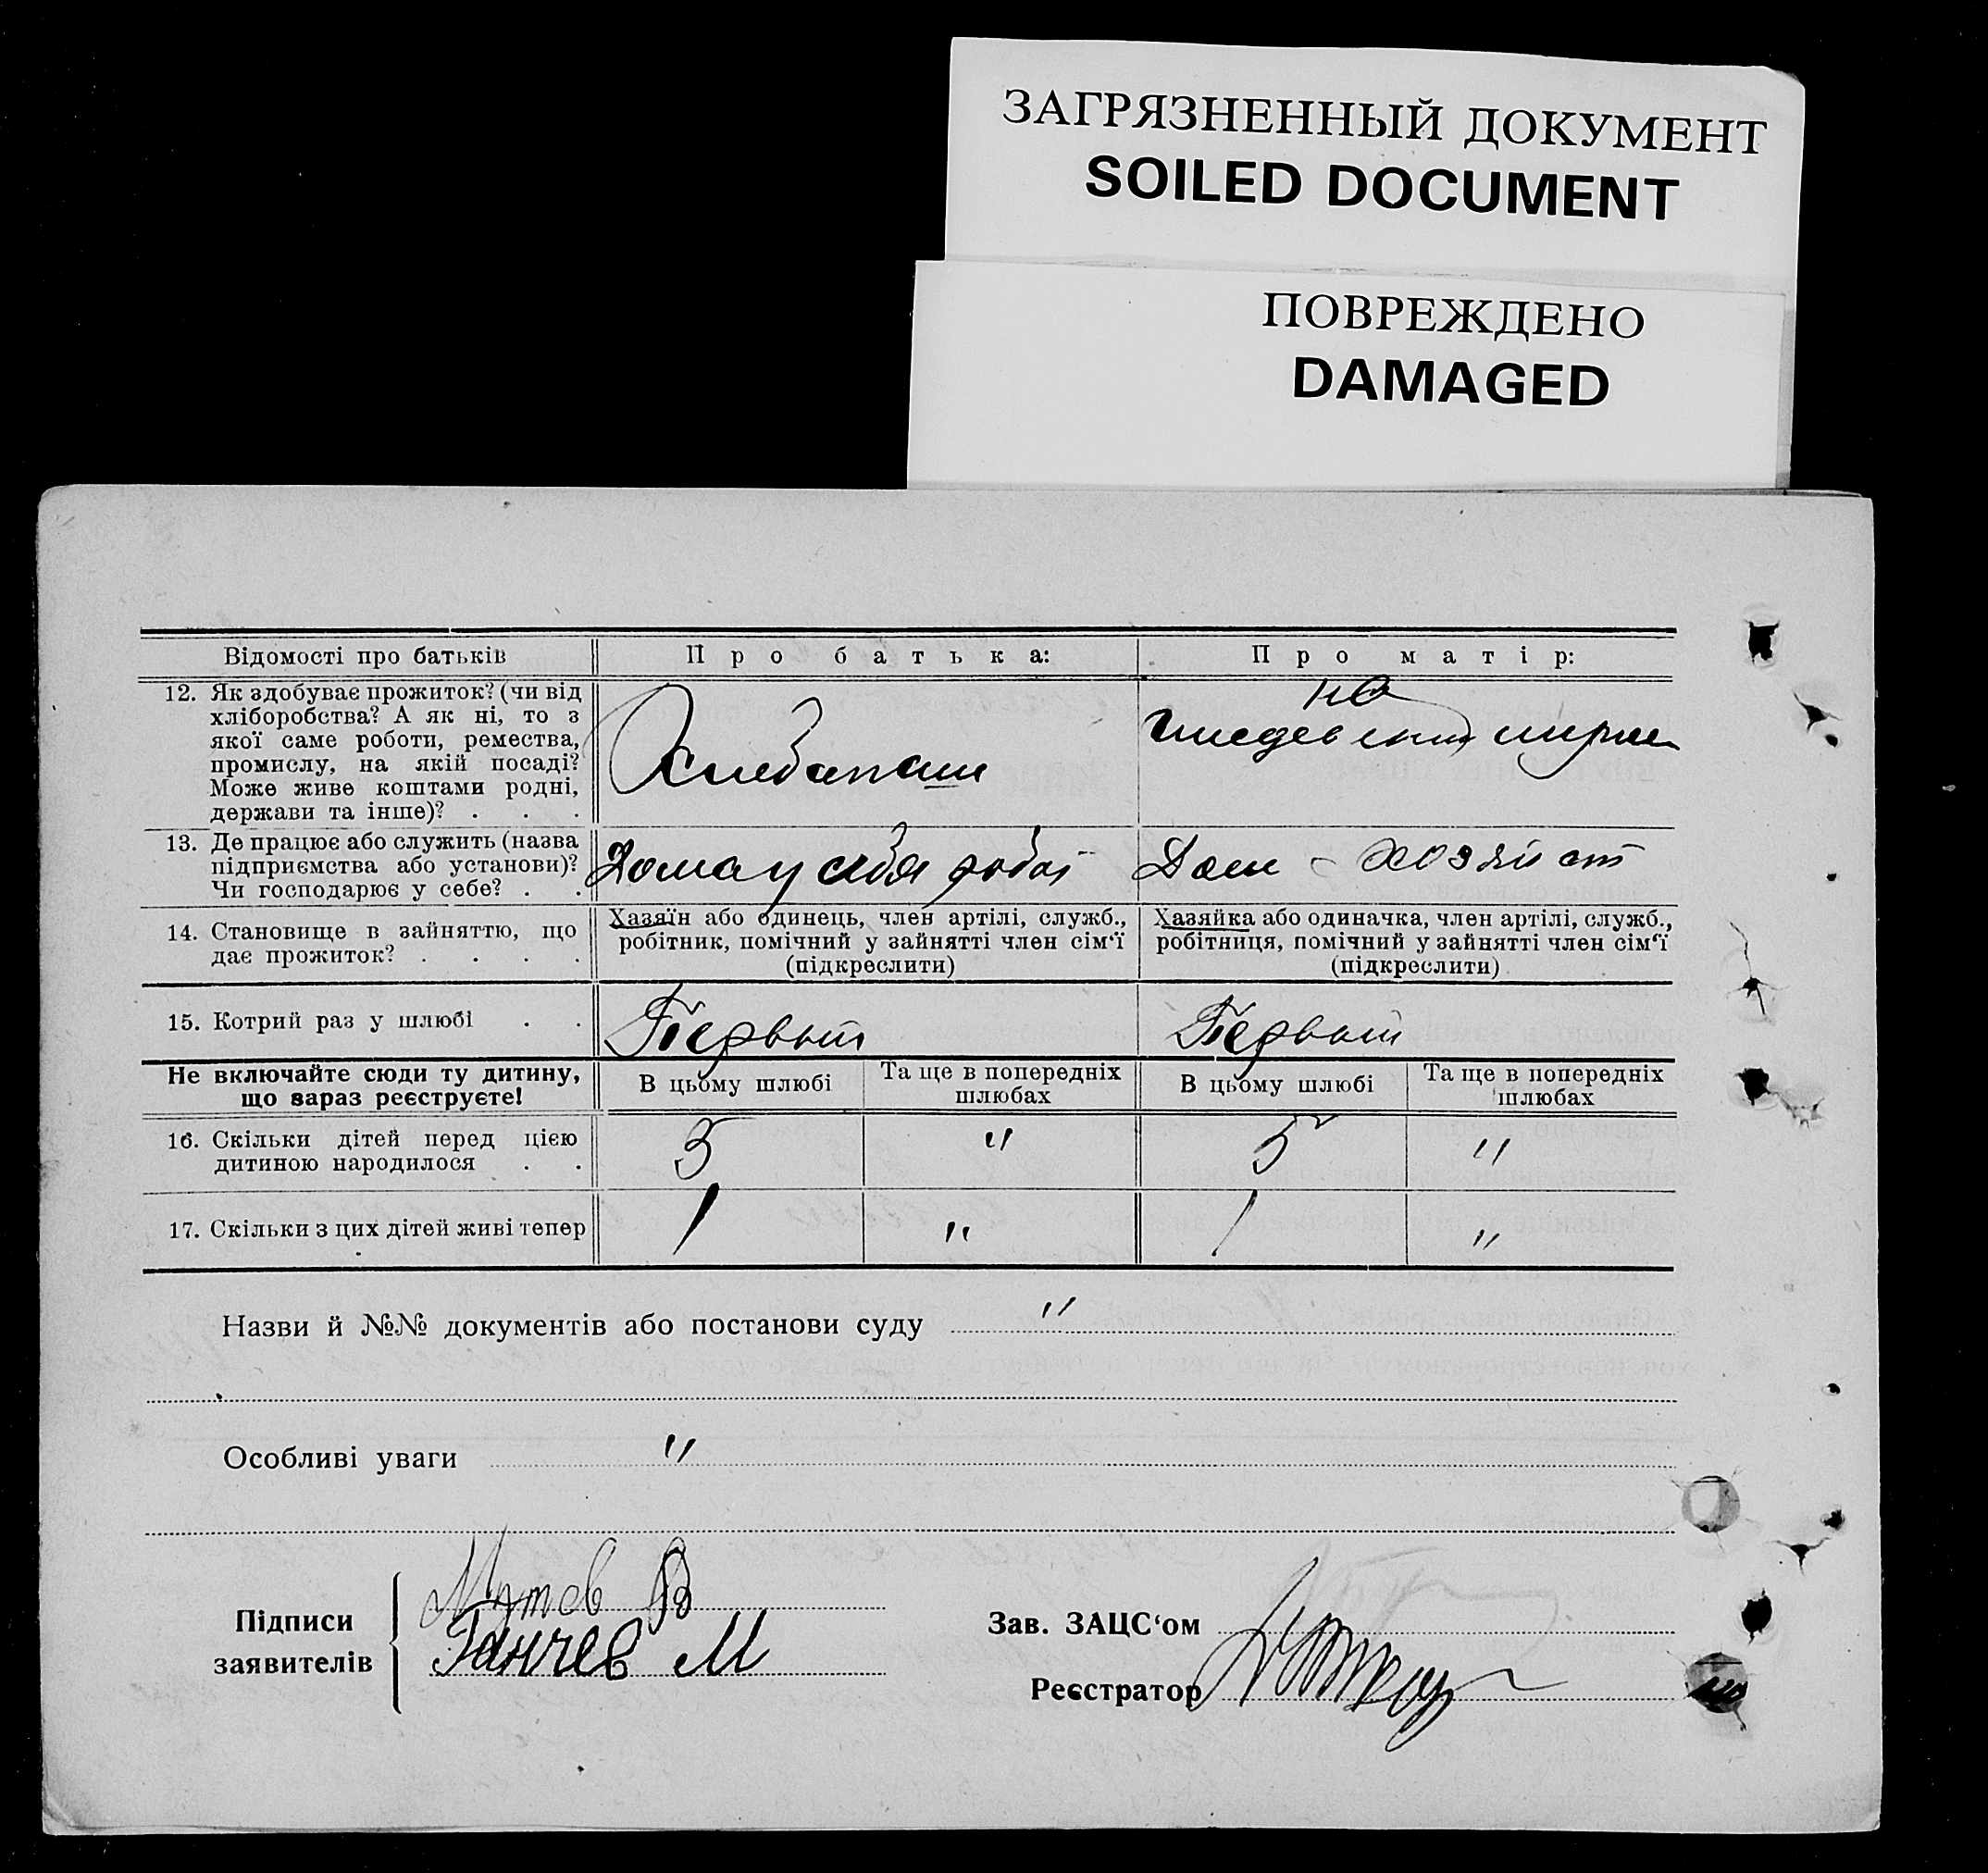 ЗАГРЯЗНЕННЫЙ ДОКУМЕНТ
SOILED DOCUMENT
ПОВРЕЖДЕНО
DAMAGED
Відомості про батьків
Про батька:
Про матір:
12. Як здобуває прожиток? (чи від
хліборобства? А як ні, то з
якої саме роботи, ремества,
промислу, на якій посаді?
Може живе коштами родні,
держави та інше)? . . .
Хлебопаш
на
13. Де працює або служить (назва
підприємства або установи)?
Чи господарює у себе? . .
Дома у себя робот
Дом - хозяйст
14. Становище в зайняттю, що
дає прожиток? . . . .
Хазяїн або одинець, член артілі, служб.,
робітник, помічний у зайнятті член сім'ї
(підкреслити)
Хазяйка або одиначка, член артілі, служб.,
робітниця, помічний у зайнятті член сім'ї
(підкреслити)
15. Котрий раз у шлюбі . .
Первый
Первый
Не включайте сюди ту дитину,
що зараз реєструєте!
В цьому шлюбі
Та ще в попередніх
шлюбах
В цьому шлюбі
Та ще в попередніх
шлюбах
16. Скільки дітей перед цією
дитиною народилося . .
5 " 5 "
17. Скільки з цих дітей живі тепер
1 " 1 "
Назви й №№ документів або постанови суду "
Особливі уваги "
Підписи
заявителів
Мутов В
Ганчев М
Зав. ЗАЦС'ом
Реєстратор